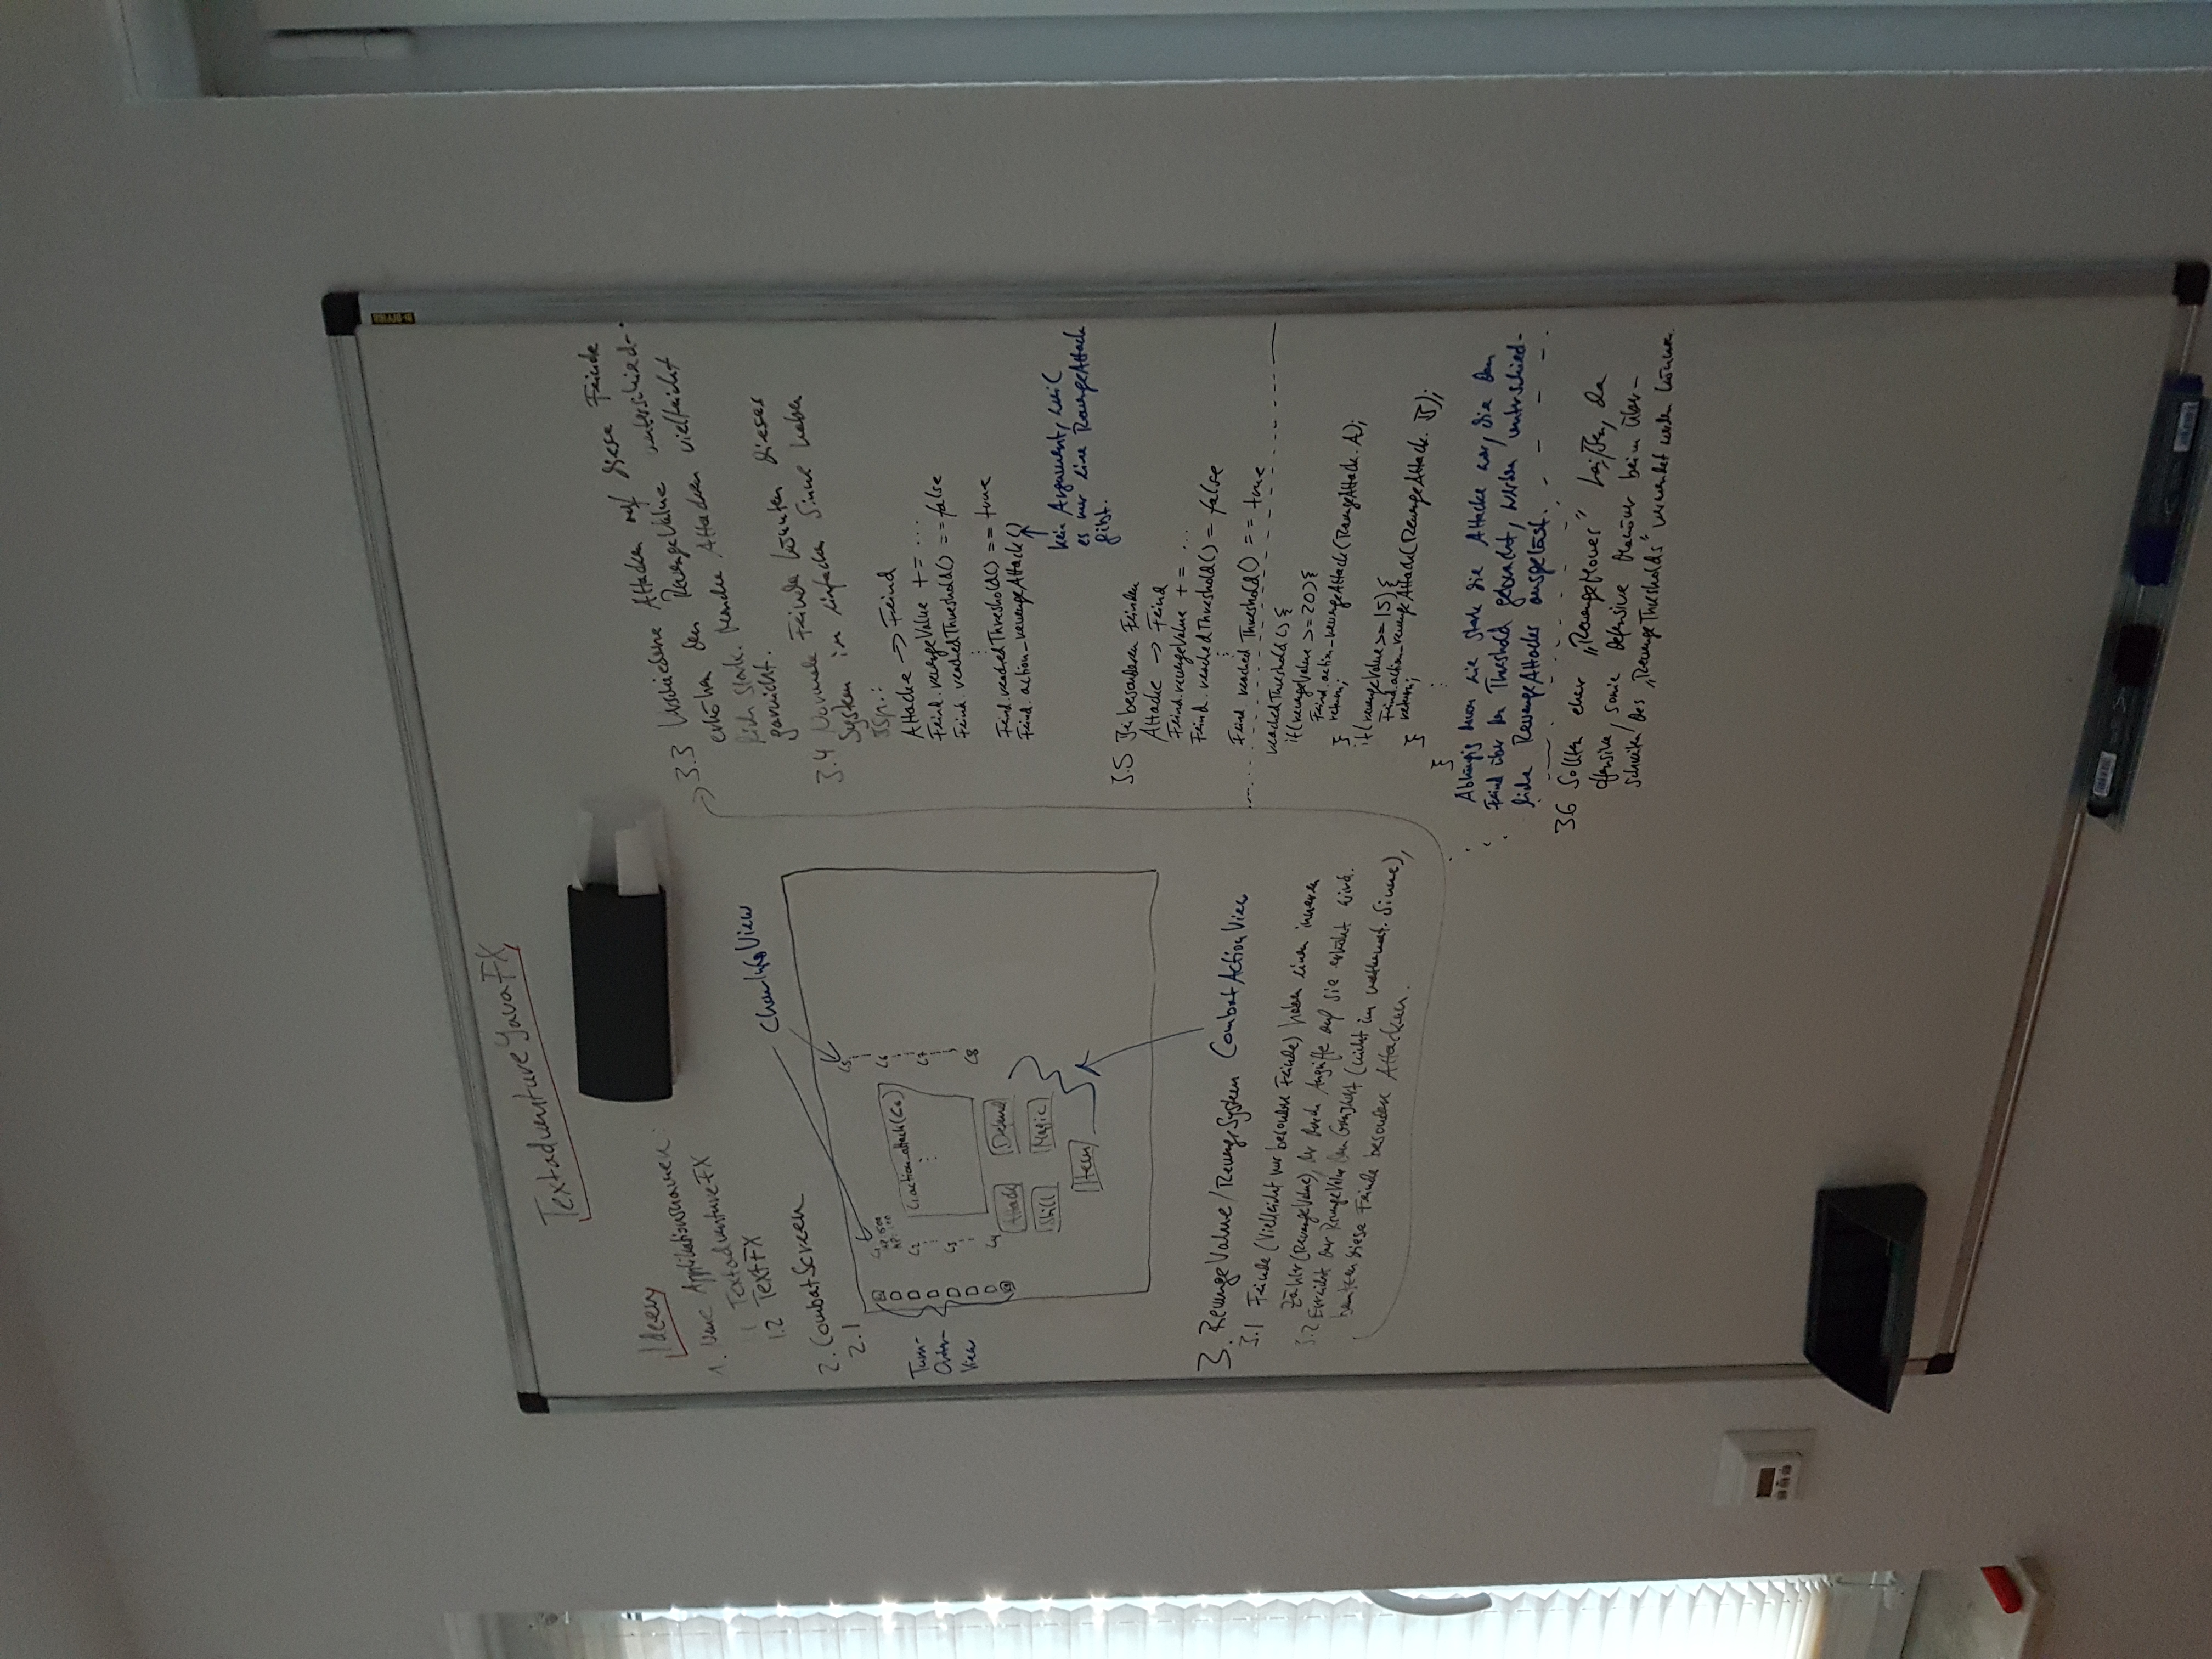 TextadventureJavaFX
Ideen
1. Neue Applikationsnamen:
1.1 TextadventureFX
1.2 TextFX
2. CombatScreen
2.1
CharInfoView
Turn-
Order-
View
C1
HP: 500
MP: 100
C2
C3
C4
C1.action_attack(C6)
C5
C6
C7
C8
Attack
Defend
Skill
Magic
Item
CombatActionView
3. RevengeValue/RevengeSystem
3.1 Feinde (Vielleicht nur besondere Feinde) haben einen inneren
Zähler (RevengeValue), der durch Angriffe auf sie erhöht wird.
3.2 Erreicht der RevengeValue den Grenzwert (nicht im mathemat. Sinne),
benutzen diese Feinde besondere Attacken.
3.3 Verschiedene Attacken auf diese Feinde
erhöhen den RevengeValue unterschied-
lich stark. Manche Attacken vielleicht
garnicht.
3.4 Normale Feinde könnten dieses
System im einfachen Sinne haben
Bsp.:
Attacke -> Feind
Feind.revengeValue += ...
Feind.reachedThreshold() == false
Feind.reachedThreshold() == true
Feind.action_revengeAttack()
kein Argument, weil
es nur eine RevengeAttack
gibt.
3.5 Bei besonderen Feinden
Attacke -> Feind
Feind.revengeValue += ...
Feind.reachedThreshold() = false
Feind.reachedThreshold() == true
reachedThreshold() {
if(revengeValue >= 20){
Feind.action_revengeAttack(RevengeAttack.A);
return;
}
if(revengeValue >= 15){
Feind.action_revengeAttack(RevengeAttack.B);
return;
}
}
Abhängig davon wie stark die Attacke war, die den
Feind über den Threshold gebracht, werden unterschied-
liche RevengeAttacks ausgelöst.
3.6 Sollten eher „RevengeMoves" heißen, da
offensive, sowie defensive Manöver beim Über-
schreiten des „RevengeThresholds" verwendet werden können.